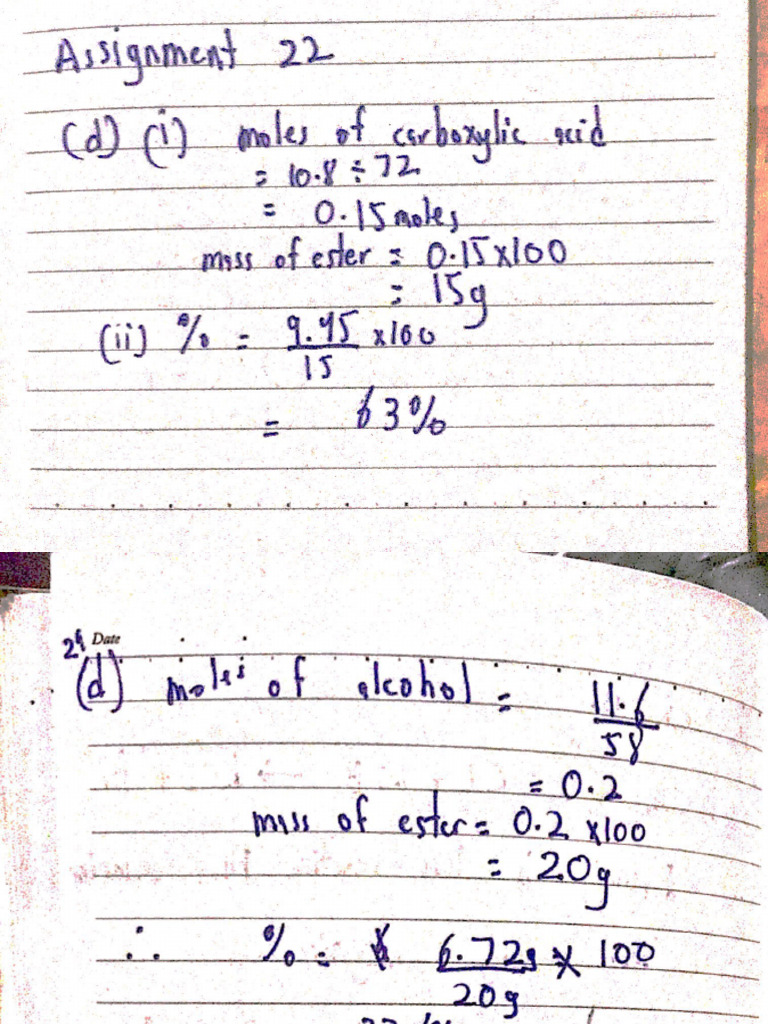 Assignment 22
(d) (i) moles of carboxylic acid
= 10.8 ÷ 72
= 0.15 moles
mass of ester = 0.15 x 100
= 15g
(ii) % = 9.45 x 100
15
= 63%
Date
(d) moles of alcohol = 11.6
58
= 0.2
mass of ester = 0.2 x 100
= 20g
∴ % = 6.72g x 100
20g